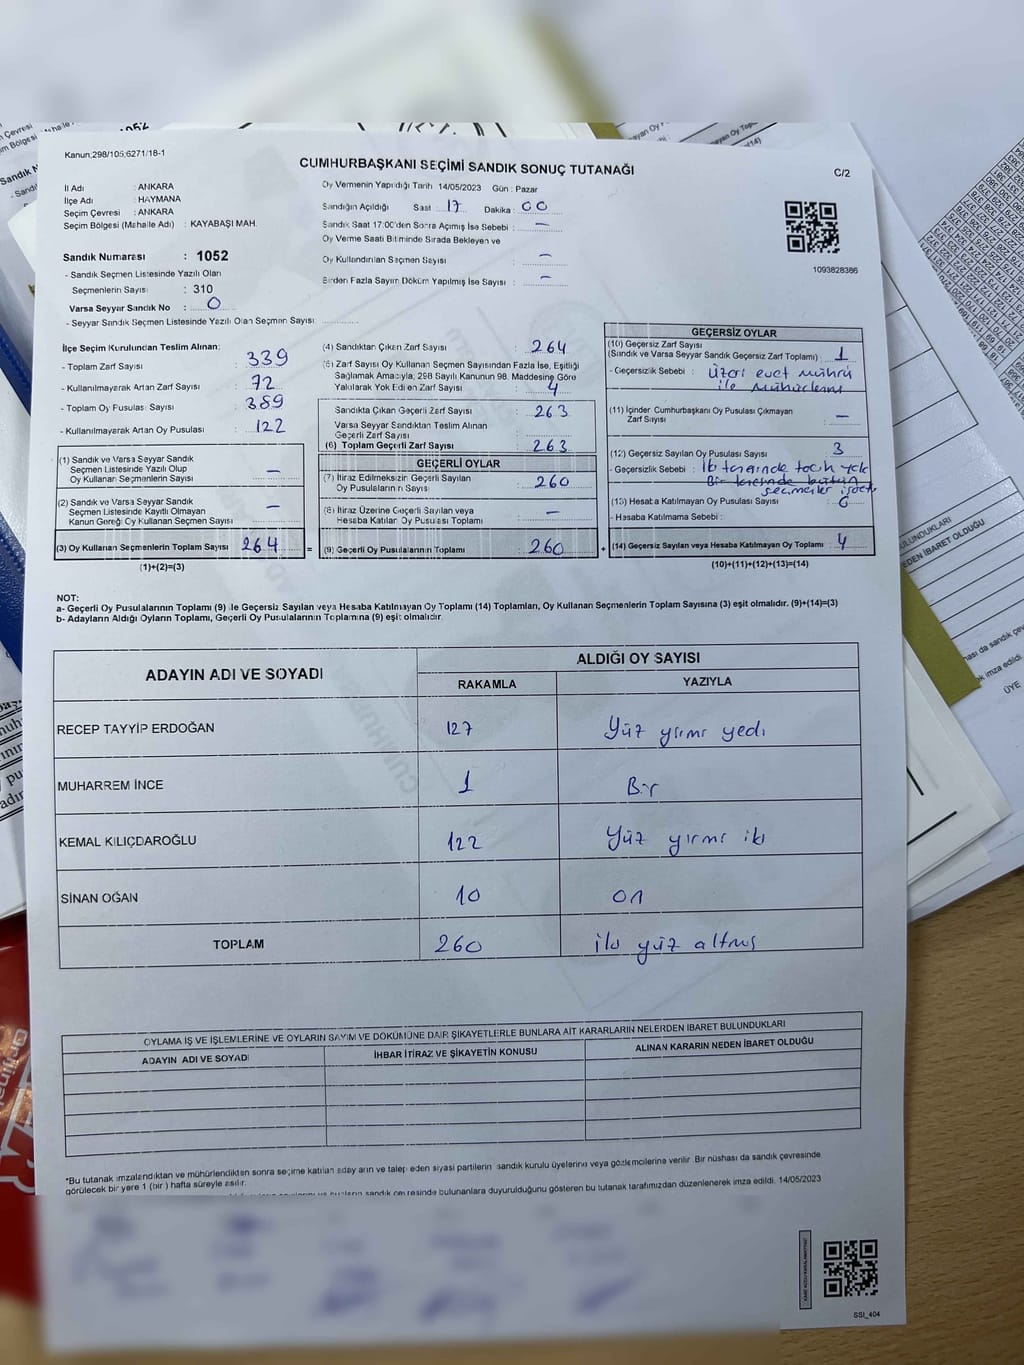 Kanun;298/105;6271/18-1
CUMHURBAŞKANI SEÇİMİ SANDIK SONUÇ TUTANAĞI
C/2
İl Adı : ANKARA
İlçe Adı : HAYMANA
Seçim Çevresi : ANKARA
Seçim Bölgesi (Mahalle Adı) : KAYABAŞI MAH.
Sandık Numarası : 1052
- Sandık Seçmen Listesinde Yazılı Olan
Seçmenlerin Sayısı : 310
Varsa Seyyar Sandık No : 0
- Seyyar Sandık Seçmen Listesinde Yazılı Olan Seçmen Sayısı:
Oy Vermenin Yapıldığı Tarih 14/05/2023 Gün : Pazar
Sandığın Açıldığı Saat : 17 Dakika : 00
Sandık Saat 17:00'den Sonra Açılmış İse Sebebi : —
Oy Verme Saati Bitiminde Sırada Bekleyen ve
Oy Kullandırılan Seçmen Sayısı : —
Birden Fazla Sayım Döküm Yapılmış İse Sayısı : —
1093828386
İlçe Seçim Kurulundan Teslim Alınan:
- Toplam Zarf Sayısı : 339
- Kullanılmayarak Artan Zarf Sayısı : 72
- Toplam Oy Pusulası Sayısı : 389
- Kullanılmayarak Artan Oy Pusulası : 122
(1) Sandık ve Varsa Seyyar Sandık
Seçmen Listesinde Yazılı Olup
Oy Kullanan Seçmenlerin Sayısı : —
(2) Sandık ve Varsa Seyyar Sandık
Seçmen Listesinde Kayıtlı Olmayan
Kanun Gereği Oy Kullanan Seçmen Sayısı : —
(3) Oy Kullanan Seçmenlerin Toplam Sayısı : 264
(1)+(2)=(3)
(4) Sandıktan Çıkan Zarf Sayısı : 264
(5) Zarf Sayısı Oy Kullanan Seçmen Sayısından Fazla İse, Eşitliği
Sağlamak Amacıyla, 298 Sayılı Kanunun 98. Maddesine Göre
Yakılarak Yok Edilen Zarf Sayısı : 4
Sandıkta Çıkan Geçerli Zarf Sayısı : 263
Varsa Seyyar Sandıktan Teslim Alınan
Geçerli Zarf Sayısı :
(6) Toplam Geçerli Zarf Sayısı : 263
GEÇERLİ OYLAR
(7) İtiraz Edilmeksizin Geçerli Sayılan
Oy Pusulalarının Sayısı : 260
(8) İtiraz Üzerine Geçerli Sayılan veya
Hesaba Katılan Oy Pusulası Toplamı : —
= (9) Geçerli Oy Pusulalarının Toplamı : 260
GEÇERSİZ OYLAR
(10) Geçersiz Zarf Sayısı
(Sandık ve Varsa Seyyar Sandık Geçersiz Zarf Toplamı) : 1
- Geçersizlik Sebebi : Üzeri evet mührü
ile mühürlenmiş
(11) İçinden Cumhurbaşkanı Oy Pusulası Çıkmayan
Zarf Sayısı : —
(12) Geçersiz Sayılan Oy Pusulası Sayısı : 3
- Geçersizlik Sebebi : tercih yok
Bir tanesinde bütün
seçmenler
(13) Hesaba Katılmayan Oy Pusulası Sayısı :
- Hesaba Katılmama Sebebi :
+ (14) Geçersiz Sayılan veya Hesaba Katılmayan Oy Toplamı : 4
(10)+(11)+(12)+(13)=(14)
NOT:
a- Geçerli Oy Pusulalarının Toplamı (9) ile Geçersiz Sayılan veya Hesaba Katılmayan Oy Toplamı (14) Toplamları, Oy Kullanan Seçmenlerin Toplam Sayısına (3) eşit olmalıdır. (9)+(14)=(3)
b- Adayların Aldığı Oyların Toplamı, Geçerli Oy Pusulalarının Toplamına (9) eşit olmalıdır.
ADAYIN ADI VE SOYADI
ALDIĞI OY SAYISI
RAKAMLA YAZIYLA
RECEP TAYYİP ERDOĞAN 127 Yüz yirmi yedi
MUHARREM İNCE 1 Bir
KEMAL KILIÇDAROĞLU 122 Yüz yirmi iki
SİNAN OĞAN 10 on
TOPLAM 260 iki yüz altmış
OYLAMA İŞ VE İŞLEMLERİNE VE OYLARIN SAYIM VE DÖKÜMÜNE DAİR ŞİKAYETLERLE BUNLARA AİT KARARLARIN NELERDEN İBARET BULUNDUKLARI
ADAYIN ADI VE SOYADI İHBAR İTİRAZ VE ŞİKAYETİN KONUSU ALINAN KARARIN NEDEN İBARET OLDUĞU
*Bu tutanak imzalandıktan ve mühürlendikten sonra seçime katılan adayların ve talep eden siyasi partilerin sandık kurulu üyelerine veya gözlemcilerine verilir. Bir nüshası da sandık çevresinde
görülecek bir yere 1 (bir) hafta süreyle asılır.
sandık çevresinde bulunanlara duyurulduğunu gösteren bu tutanak tarafımızdan düzenlenerek imza edildi. 14/05/2023
SSI_404